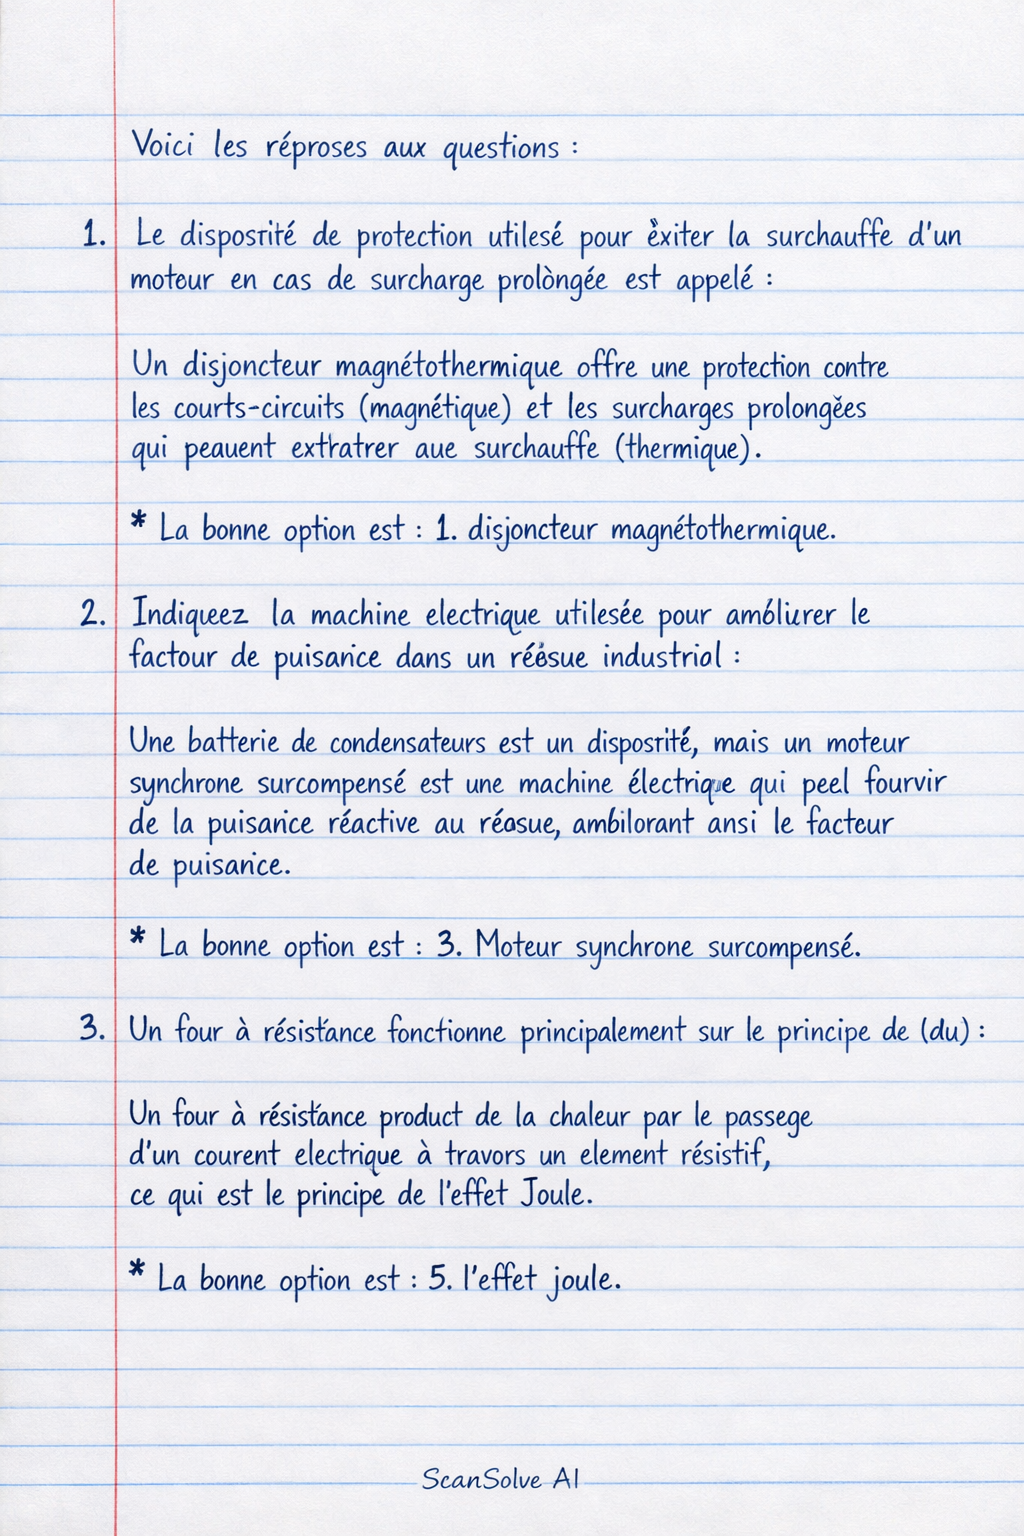 Voici les réproses aux questions :
1. Le disposrité de protection utilesé pour èxiter la surchauffe d'un
moteur en cas de surcharge prolòngée est appelé :
Un disjoncteur magnétothermique offre une protection contre
les courts-circuits (magnétique) et les surcharges prolongées
qui peauent exthatrer aue surchauffe (thermique).
* La bonne option est : 1. disjoncteur magnétothermique.
2. Indiqueez la machine electrique utilesée pour améliurer le
factour de puisarice dans un réésue industrial :
Une batterie de condensateurs est un disposrité, mais un moteur
synchrone surcompensé est une machine électrique qui peel fourvir
de la puisarice réactive au réasue, ambilorant ansi le facteur
de puisarice.
* La bonne option est : 3. Moteur synchrone surcompensé.
3. Un four à résistance fonctionne principalement sur le principe de (du) :
Un four à résistance product de la chaleur par le passege
d'un courent electrique à travors un element résistif,
ce qui est le principe de l'effet Joule.
* La bonne option est : 5. l'effet joule.
ScanSolve AI